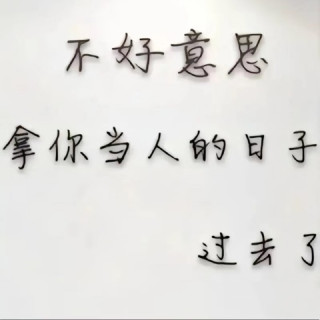 不好意思
拿你当人的日子
过去了